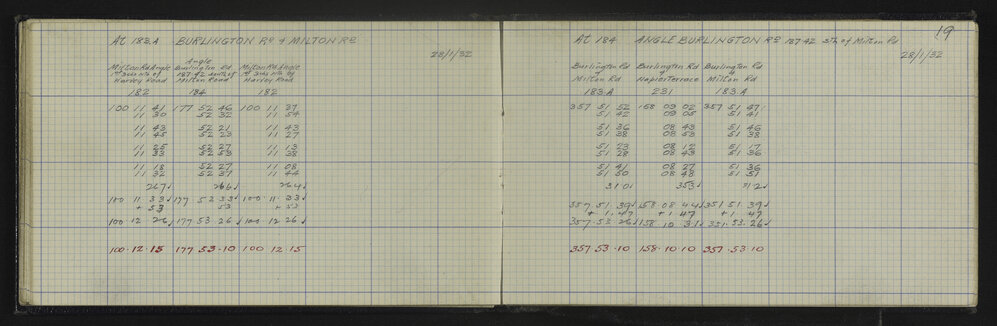 At 183.A BURLINGTON Rd & MILTON Rd
28/1/32
Milton Rd Angle 1st 3 chs Nth of Harley Road
Angle Burlington Rd 187.42 South of Milton Road
Milton Rd Angle 1st 3 chs Nth of Harley Road
182 184 182
100 11 41 177 52 46 100 11 39
11 30 52 32 11 54
11 43 52 21 11 43
11 45 52 23 11 27
11 25 52 27 11 13
11 33 52 53 11 38
11 18 52 27 11 08
11 32 52 37 11 44
267 266 264
100 11 33 177 52 33 100 11 33
+ 53 53 + 53
100 12 26 177 53 26 100 12 26
100.12.15 177 53.10 100 12.15
19
At 184 ANGLE BURLINGTON Rd 187.42 Sth of Milton Rd
28/1/32
Burlington Rd & Milton Rd
Burlington Rd & Napier Terrace
Burlington Rd & Milton Rd
183.A 231 183.A
357 51 52 158 09 02 357 51 47
51 42 09 05 51 41
51 36 08 43 51 46
51 38 08 53 51 38
51 23 08 12 51 17
51 28 08 43 51 36
51 41 08 27 51 36
51 50 08 48 51 51
310 353 312
357.51.39 158.08 44 351 51 39
+ 1.47 + 1 47 + 1 47
357.53.26 158.10 31 351.53.26
357.53.10 158.10 10 357.53.10